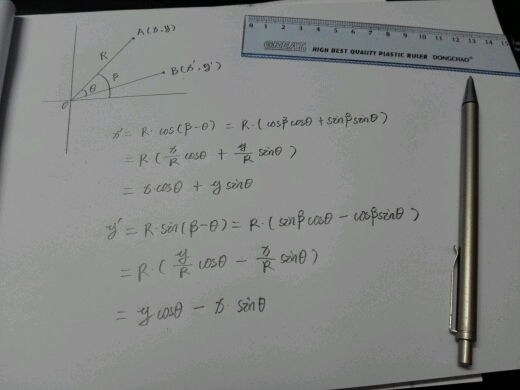 A(x,y)
R
B(x',y')
θ
β
0 1 2 3 4 5 6 7 8 9 10 11 12 13 14 15
GREAT HIGH BEST QUALITY PLASTIC RULER DONGCHAO
x' = R·cos(β-θ) = R·(cosβcosθ + sinβsinθ)
= R(x/R cosθ + y/R sinθ)
= xcosθ + ysinθ
y' = R·sin(β-θ) = R·(sinβcosθ - cosβsinθ)
= R·(y/R cosθ - x/R sinθ)
= ycosθ - x·sinθ